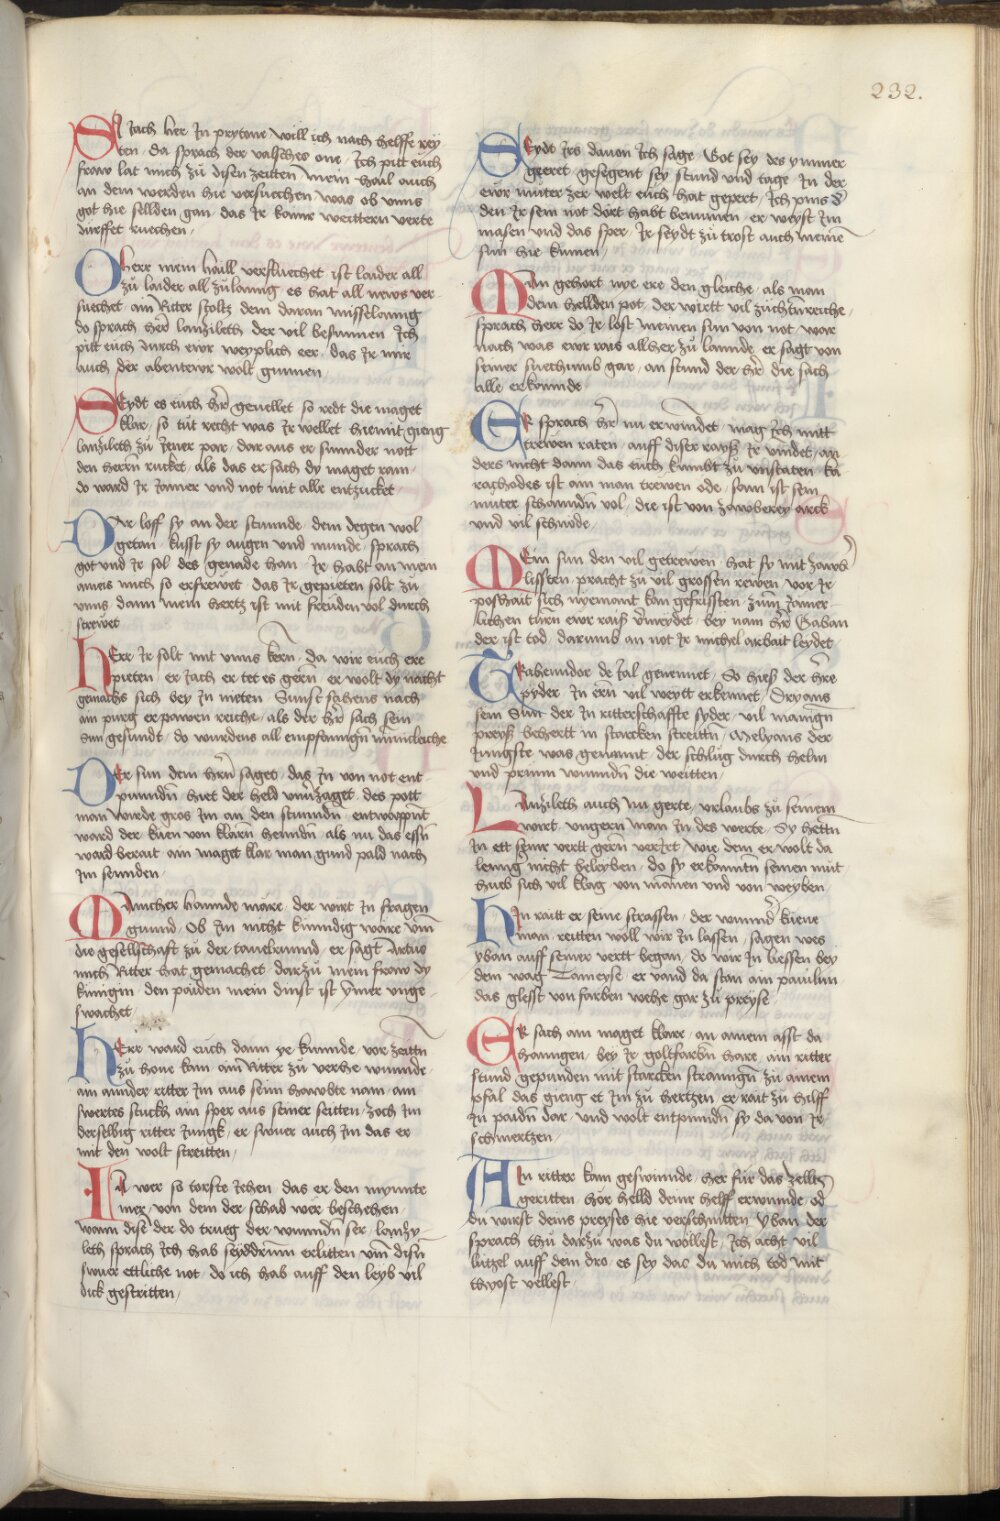 232.
Sy Jach her Jn prytone will ich nach helffe rey
ten · da sprach der valsches one · Jch pitt euch
fraw lat mich zů disen zeitten mein hail auch
an dem werden hie versuechen · was ob vnns
got hie sellden gan · das Jr kainr weittern verte
dürffet ruechen ·
O herr mein haill versuechet ist laider all
zů laider all zůlanng · es hat all news ver
suechet · ain Ritter stoltz dem daran misselanng
do sprach her lanzileth der vil besunnen · Jch
pitt euch durch ewr weyplich eer · das Jr mir
auch der abentewr wolt gunnen ·
Seydt es euch her geuellet so redt die maget
klar · so tüt recht was Jr wellet hiemit gieng
lanzileth zů Jener par · dar aus er sunnder nott
den herrn rucket · als das er sach dy maget ram ·
do ward Jr Jamer vnd not mit alle entzucket
Dar loff sy an der stunnde · dem degen wol
getan · kusst sy augen vnd munde · sprach
got vnd Jr sol des genade han · Jr habt an mein
amis mich so erfrewet das Jr gepieten solt zů
vnns · dann mein hertz ist mit freuden vol durch
strewet
Herr Jr solt mit vnns kern · da wir euch ere
pieten · er Jach er tet es gern · er wolt dy nacht
gemachs sich bey Jn nieten · Sunst sahens nach
ain purg erpawen reiche · als der her sach sein
Sun gesundt · do wurdens all empfanngn minicleiche
Der sun dem hern saget · das Jn von not ent
punndn hiet der held vnuerzaget · des pott
man wirde gros Jm an den stunndn · entwappent
ward der kuen von klarn henndn · als nu das essn
ward berait · ain maget klar man gund pald nach
Jm sennden ·
Mancher hannde mare · der wirt Jn fragen
gunnd · Ob Jm nicht kunndig ware vm
die gesellschaft zů der tauelrunnd · er sagt Artus
mich Ritter hat gemachet · darzů mein fraw dy
künigin · den paiden mein dinst ist ymer vnge
swachet
Herr ward euch dann ye kunnde · vor zeittn
zů houe kam ain Ritter zů verhe wunnde ·
ain annder ritter Jm aus seim hawbte nam · ain
swertes stuckh ain sper aus seiner seitten · zoch Jm
derselbig ritter Jungk · er swuer auch Jm das er
mit den wolt streitten ·
Ja wer so torste Jehen · das er den mynnte
mer · von dem der schad wer beschehen ·
wann dise der do trueg der wunndn ser · lanzi
leth sprach Jch hab seyddrumm erlitten vm disn
swuer ettliche not · do ich hab auff den leyb vil
dick gestritten ·
Seydt Jrs dauon Jch sage · Got sey des ymmer
geeret · gesegent sey stund vnd tage · Jn der
ewr müter zer welt euch hat gepert · Jch prüs d
den Jr sein not dort habt benumen · er weyst Jm
masen vnd das sper · Jr seydt zů trost auch meinē
sun hie kumen ·
Man gehort nye ere den gleiche · als man
dem hellden pot · der wirtt vil züchtnreiche ·
sprach herr do Jr lost meinen sun von not · war
nach was ewr rais allher zů lannde · er sagt von
seiner suechunnb gar · an stund der her die sach
alle erkannde
Er sprach her nu erwindet · mag Jch mitt
trewen raten · auff diser rayß Jr vindet · an
ders nicht dann das euch kumbt zů vnstaten · ka
rachodes ist am man trewen ode · sam ist sein
müter schanndn vol · die ist von zawberey arck
vnd vil schnöde ·
Mein sun den vil getrewen · hat sy mit zawber
lissten · pracht zů vil grossen rewen · vor Jr
poshait sich nyemant kan gefrissten · zům Jamer
lichen turn ewr raiß vermeydet · bey nam her Gaban
der ist tod · darumb an not Jr michel arbait leydet
Trabenndor de tal genennet · So hieß der here
pyder · Jn ern vil weytt erkennet · Dryans
sein Sun · der Jn ritterschaffte syder · vil manign
preyß behertt in starcken streittn · Melyans der
Jungste was genannt · der schlüg durch helm
vnd prunn wunndn die weitten ·
Lanzileth auch nu gerte · vrlaubs zů seinem
wirt · vngern man Jn des werte · Sy hettn
Jn ett seiner vertt gern verJrt · wie dem er wolt da
lennger nicht beleyben · do sy erkanntn seinen mut
hueb sich vil klag von mannen vnd von weyben ·
Hin raitt er seine strassen · der wunnder küene
man · reitten well wir Jn lassen · sagen wes
yban auff seiner vertt began · do wir Jn liessen bey
dem wag Tameyse · er vand da stan ain pauilun
das glesst von farben wehe gar zů preyse
Er sach ain maget klare · an ainem asst da
hanngen · bey Jr goltfarbn hare · ain ritter
stund gepunden mit starcken stranngn zů ainem
pfal das gieng et Jm zů hertzen · er rait zů hilff
Jn paidn dar · vnd wolt entpinndn sy da von Jr
schmertzen ·
Ain ritter kam geswinnde · her für das zellt
geritten · hör helld deinr helff erwinnde · od
du wirst deins preyses hie verschnitten · yban der
sprach thů darzů was du wöllest · Jch acht vil
lützel auff dein dro · es sey dac du mich tod mit
thyost vellest ·